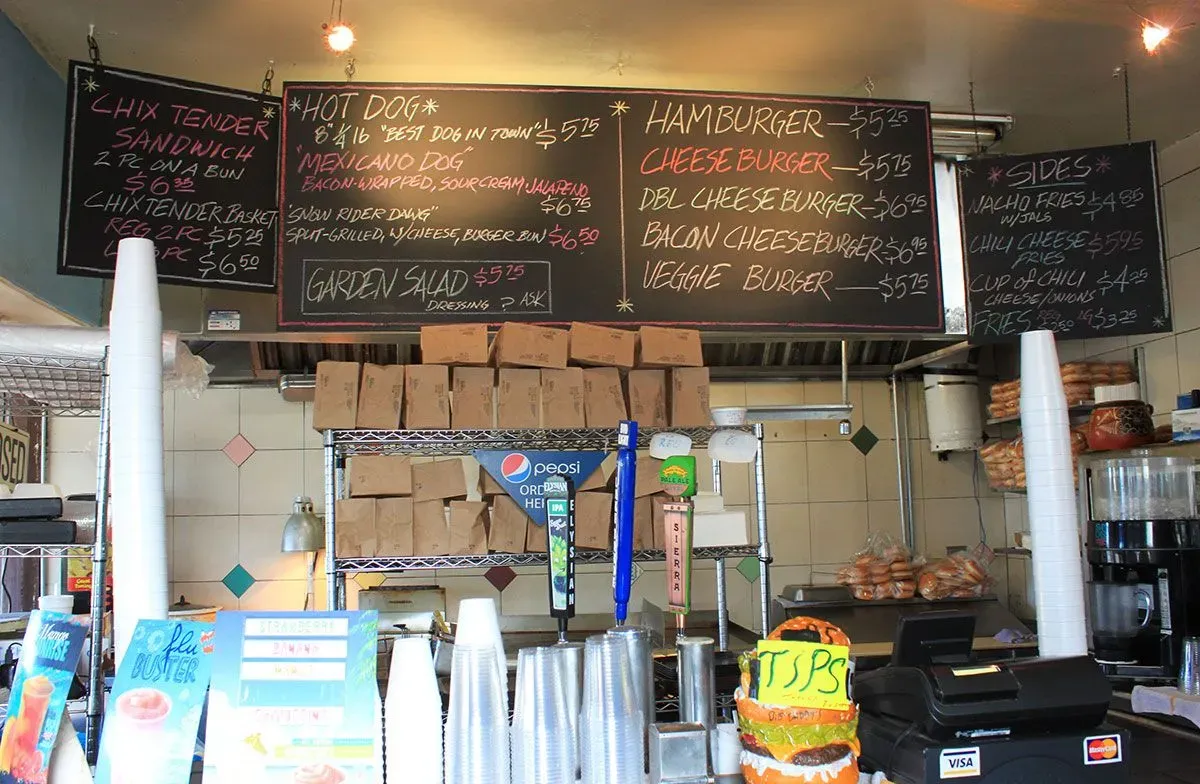 CHIX TENDER
SANDWICH
2 PC ON A BUN
$6.35
CHIX TENDER BASKET
REG 2 PC $5.25
PC $6.50
*HOT DOG*
8" 1/4 lb "BEST DOG IN TOWN" $5.75
"MEXICANO DOG"
BACON-WRAPPED, SOUR CREAM, JALAPENO
$6.75
"SNOW RIDER DAWG"
SPLIT-GRILLED, W/CHEESE, BURGER BUN $6.50
GARDEN SALAD $5.75
DRESSING ? ASK
HAMBURGER — $5.25
CHEESE BURGER — $5.75
DBL CHEESE BURGER — $6.95
BACON CHEESEBURGER $6.95
VEGGIE BURGER — $5.75
*SIDES*
NACHO FRIES $4.85
W/JALS
CHILI CHEESE $5.95
FRIES
CUP OF CHILI $4.25
CHEESE/ONIONS
FRIES REG LG $3.25
pepsi
IPA
ELYSIAN
PALE ALE
SIERRA
flu
BUSTER
STRAWBERRY
BANANA
TIPS
VISA
MasterCard